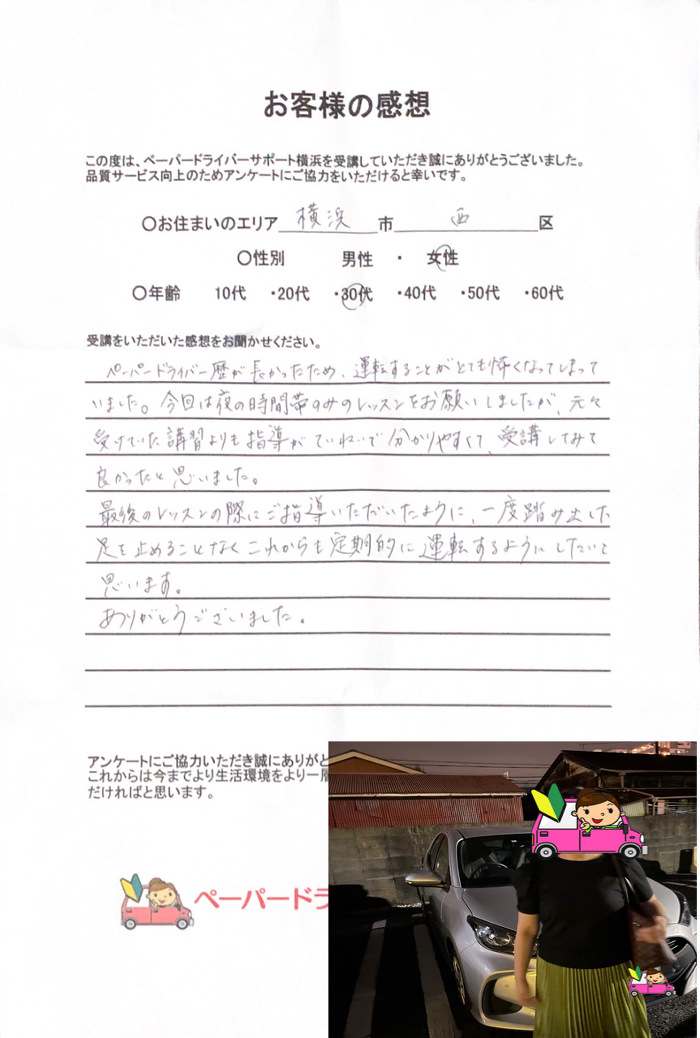 お客様の感想
この度は、ペーパードライバーサポート横浜を受講していただき誠にありがとうございました。
品質サービス向上のためアンケートにご協力をいただけると幸いです。
〇お住まいのエリア 横浜 市 西 区
〇性別 男性 ・ 女性
〇年齢 10代 ・20代 ・30代 ・40代 ・50代 ・60代
受講をいただいた感想をお聞かせください。
ペーパードライバー歴が長かったため、運転することがとても怖くなってしまって
いました。今回は夜の時間帯のみのレッスンをお願いしましたが、元々
受けていた講習よりも指導がていねいで分かりやすくて、受講してみて
良かったと思いました。
最後のレッスンの際にご指導いただいたように、一度踏み出した
足を止めることなくこれからも定期的に運転するようにしたいと
思います。
ありがとうございました。
アンケートにご協力いただき誠にありがと
これからは今までより生活環境をより一層
だければと思います。
ペーパードラ